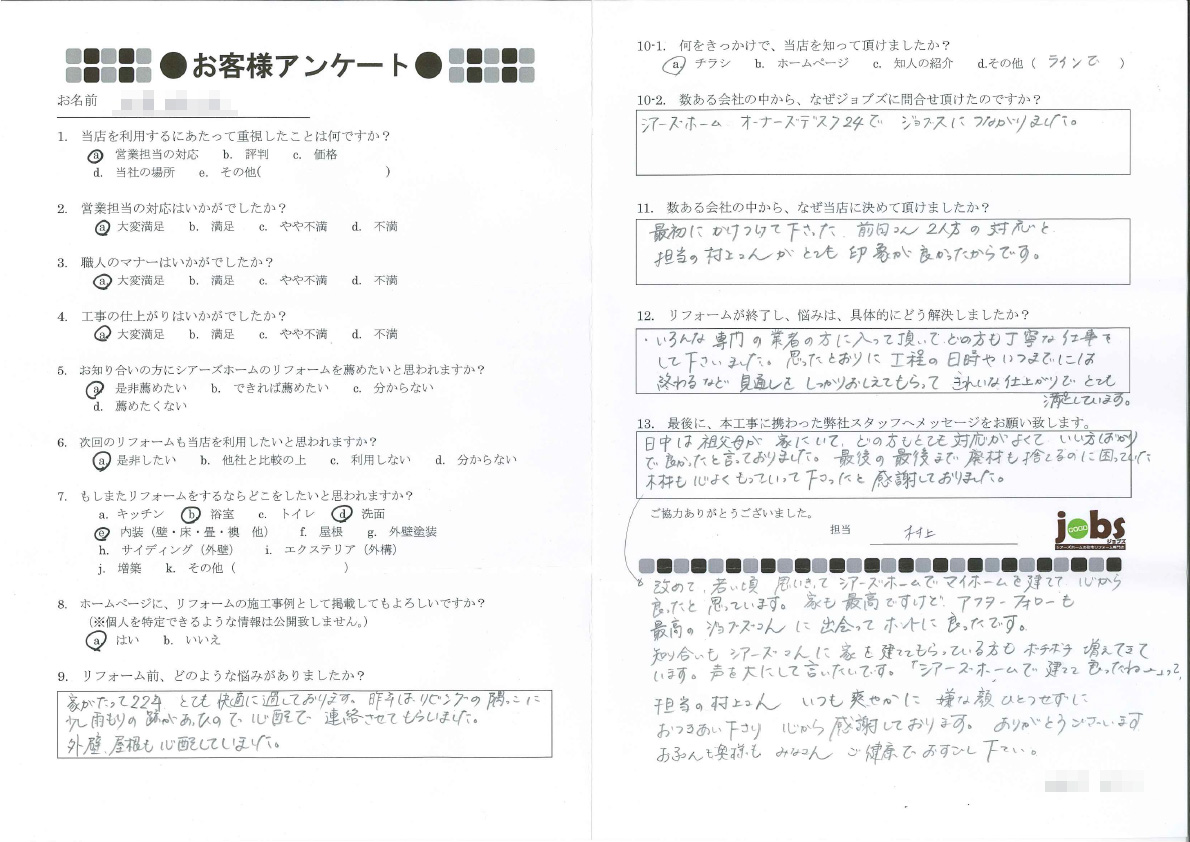 ●お客様アンケート●
お名前
1. 当店を利用するにあたって重視したことは何ですか？
a 営業担当の対応 b. 評判 c. 価格
d. 当社の場所 e. その他( )
2. 営業担当の対応はいかがでしたか？
a 大変満足 b. 満足 c. やや不満 d. 不満
3. 職人のマナーはいかがでしたか？
a 大変満足 b. 満足 c. やや不満 d. 不満
4. 工事の仕上がりはいかがでしたか？
a 大変満足 b. 満足 c. やや不満 d. 不満
5. お知り合いの方にシアーズホームのリフォームを薦めたいと思われますか？
a 是非薦めたい b. できれば薦めたい c. 分からない
d. 薦めたくない
6. 次回のリフォームも当店を利用したいと思われますか？
a 是非したい b. 他社と比較の上 c. 利用しない d. 分からない
7. もしまたリフォームをするならどこをしたいと思われますか？
a. キッチン b 浴室 c. トイレ d 洗面
e 内装（壁・床・畳・襖 他） f. 屋根 g. 外壁塗装
h. サイディング（外壁） i. エクステリア（外構）
j. 増築 k. その他（ ）
8. ホームページに、リフォームの施工事例として掲載してもよろしいですか？
（※個人を特定できるような情報は公開致しません。）
a はい b. いいえ
9. リフォーム前、どのような悩みがありましたか？
家がたって22年 とても快適に過しております。昨年はリビングの隅っこに
少し雨もりの跡があったので心配で 連絡させてもらいました。
外壁、屋根も心配していました。
10-1. 何をきっかけで、当店を知って頂けましたか？
a チラシ b. ホームページ c. 知人の紹介 d.その他（ ラインで ）
10-2. 数ある会社の中から、なぜジョブズに問合せ頂けたのですか？
シアーズホーム オーナーズデスク24で ジョブズにつながりました。
11. 数ある会社の中から、なぜ当店に決めて頂けましたか？
最初にかけつけて下さった、前田さん 2人方の対応と
担当の村上さんがとても印象が良かったからです。
12. リフォームが終了し、悩みは、具体的にどう解決しましたか？
・いろんな専門の業者の方に入って頂いてどの方も丁寧な仕事を
して下さいました。思ったとおりに工程の日時やいつまでには
終わるなど見通しをしっかりおしえてもらって きれいな仕上がりでとても
満足しています。
13. 最後に、本工事に携わった弊社スタッフへメッセージをお願い致します。
日中は祖父母が家にいて、どの方もとても対応がよくていい方ばかり
で良かったと言っておりました。最後の最後まで廃材も捨てるのに困っていた
木材も心よくもっていって下さったと感謝しておりました。
ご協力ありがとうございました。
担当 村上
jobs
GOOD
ジョブズ
改めて、若い頃 思いきってシアーズホームでマイホームを建てて、心から
良かったと思っています。家も最高ですけど、アフターフォローも
最高のジョブズさんに出会ってホントに良かったです。
知り合いもシアーズさんに家を建ててもらっている方もボチボチ増えてきて
います。声を大にして言いたいです。「シアーズホームで建てて良かったねーって
担当の村上さん いつも爽やかに 嫌な顔ひとつせずに
おつきあい下さり 心から感謝しております。ありがとうございます
お子さんも奥様も みなさん ご健康でおすごし下さい。